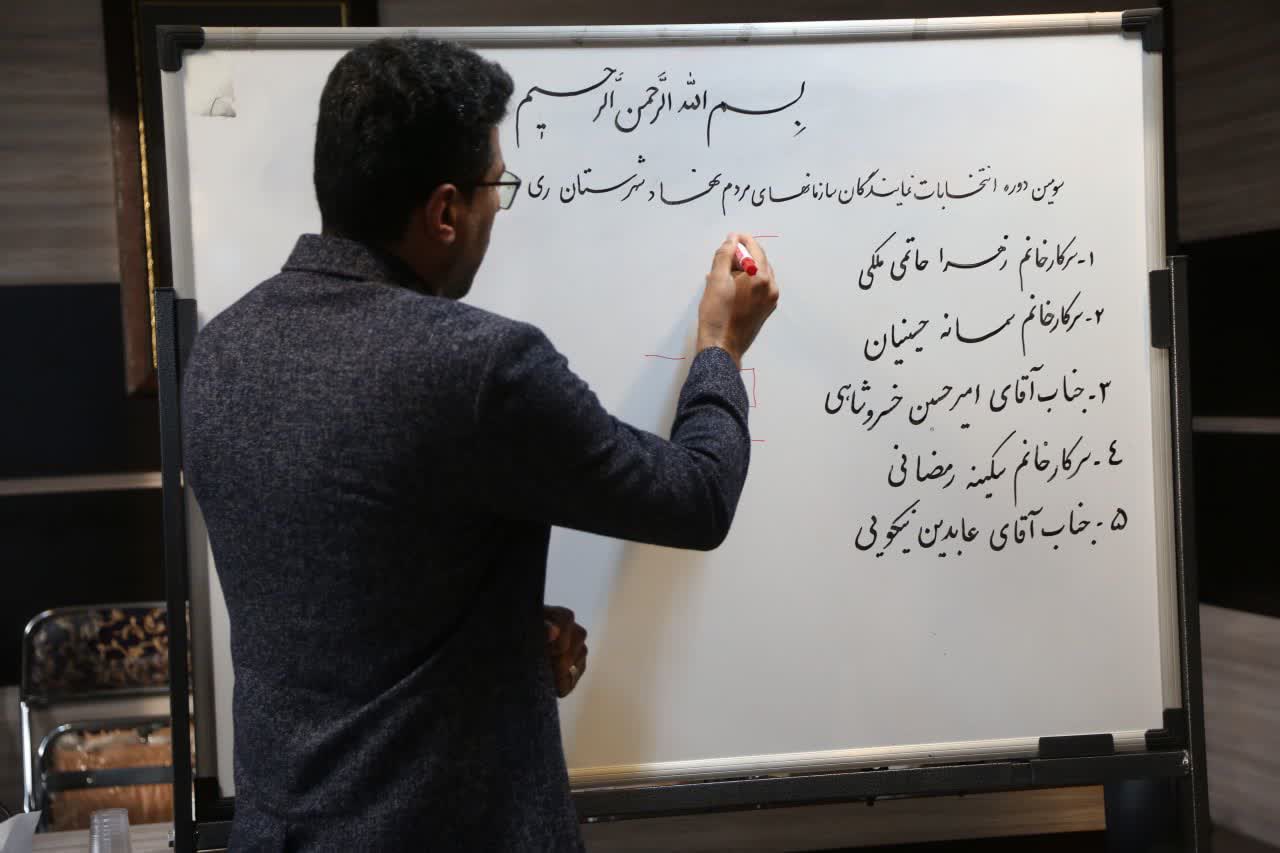 بسم الله الرَّحمن الرَّحیم
سومین دوره انتخابات نمایندگان سازمانهای مردم نهاد شهرستان ری
۱- سرکار خانم زهرا حاتمی ملکی
۲- سرکار خانم سمانه حسینیان
۳- جناب آقای امیرحسین خسروشاهی
٤- سرکار خانم سکینه رمضانی
۵- جناب آقای عابدین نیکویی